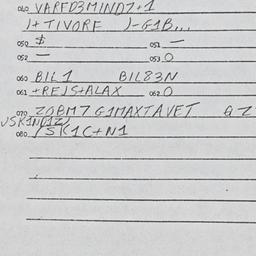 040 VARFD3MIND7+1
)+TIVORE )-G1B...
050 $ 051 —
052 — 053 O
060 BIL1 BIL83N
061 +REJS+ALAX 062 O
070 ZOBM7 G1MAXTAVET QZ
080 /SK1C+N1